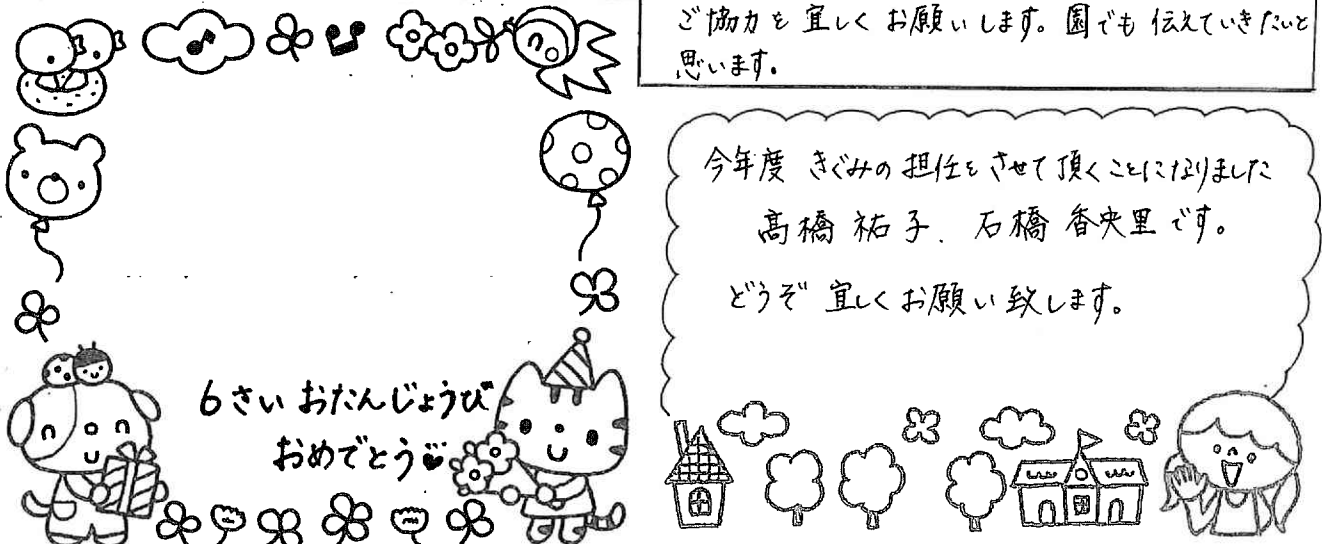 ご協力を宜しくお願いします。園でも伝えていきたいと
思います。
今年度 きぐみの担任をさせて頂くことになりました
髙橋祐子、石橋香央里です。
どうぞ宜しくお願い致します。
6さい おたんじょうび
おめでとう♥